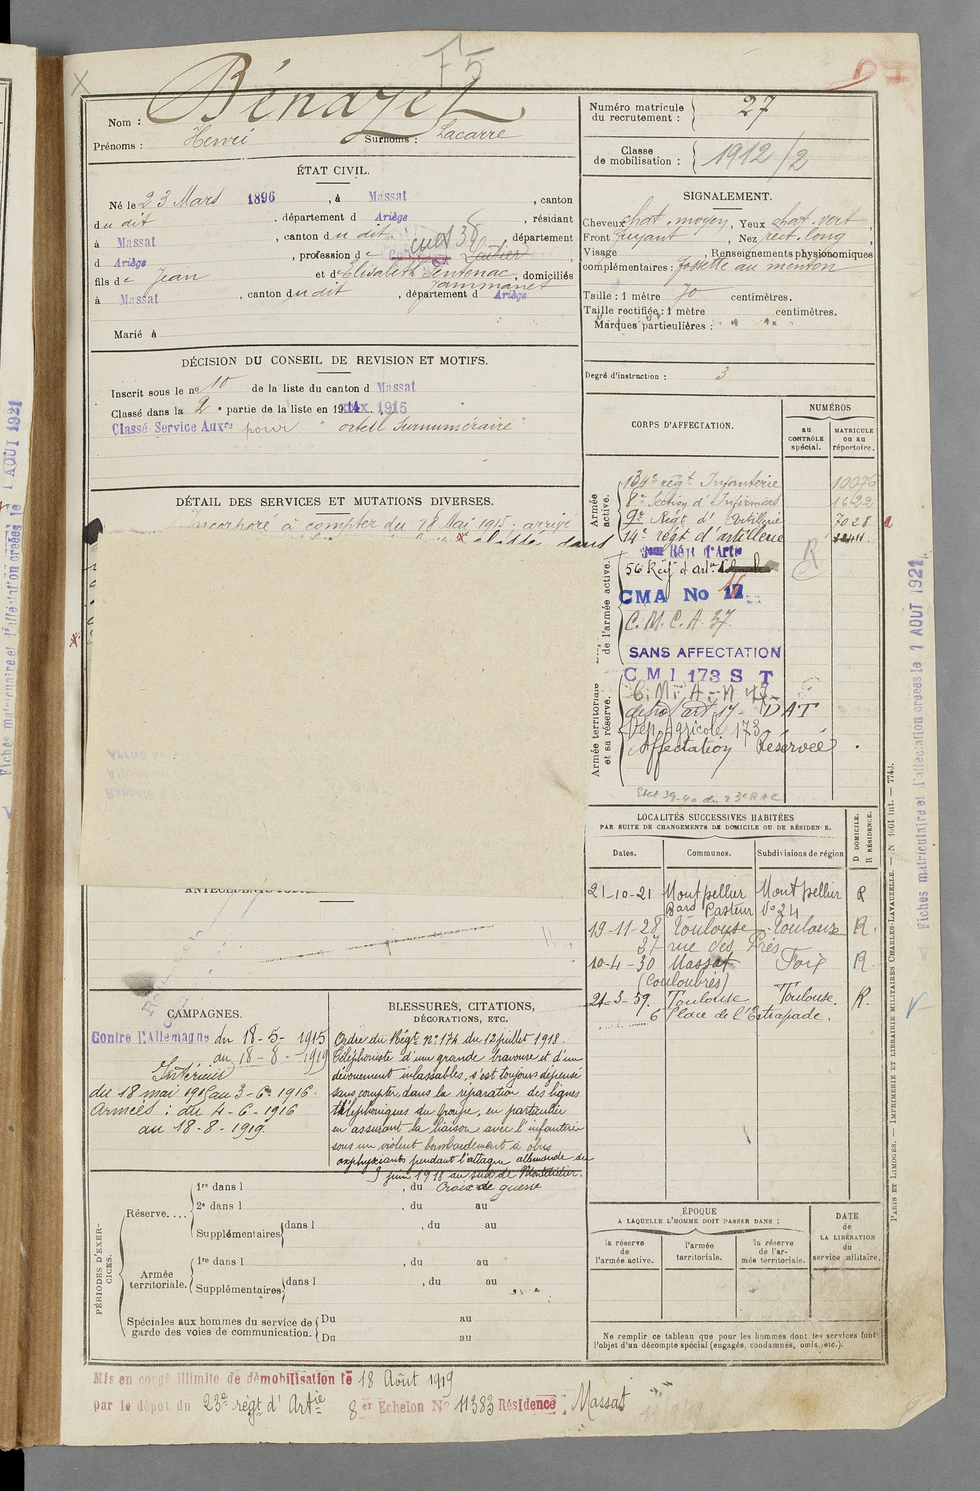 F5
Bénazet
Nom :
Prénoms : Henri Surnoms : Lacarre
ÉTAT CIVIL.
Né le 23 Mars 1896, à Massat, canton
du dit, département d Ariège, résidant
à Massat, canton du dit, département
d Ariège, profession de cult
fils de Jean et d'Elisabeth Sentenac, domiciliés
à Massat, canton du dit, département d Ariège
Marié à
DÉCISION DU CONSEIL DE REVISION ET MOTIFS.
Inscrit sous le no 10 de la liste du canton d Massat
Classé dans la 2e partie de la liste en 1915
Classé Service Auxre pour "orteil Surnuméraire"
DÉTAIL DES SERVICES ET MUTATIONS DIVERSES.
Incorporé à compter du 18 Mai 1915. arrivé
dans
Numéro matricule du recrutement : 27
Classe de mobilisation : 1912/2
SIGNALEMENT.
Cheveux chat. moyen, Yeux chat. vert
Front fuyant, Nez rect. long,
Visage, Renseignements physionomiques
complémentaires : fossette au menton
Taille : 1 mètre 70 centimètres.
Taille rectifiée : 1 mètre centimètres.
Marques particulières :
Degré d'instruction : 3
CORPS D'AFFECTATION.
NUMÉROS
AU CONTRÔLE spécial.
MATRICULE OU AU répertoire.
Armée active.
134e régt Infanterie 10076
8e Section d'Infirmiers 1622
9e Régt d'Artillerie 7028
14e régt d'artillerie
de l'armée active.
56 Rég d'art
CMA No
C.M.C.A. 37.
SANS AFFECTATION
CMI 173 ST
Armée territoriale et sa réserve.
C.M.A-N 17
dépot art 17 - DAT
Dép Agricole 173
Affectation Réservée.
LOCALITÉS SUCCESSIVES HABITÉES
PAR SUITE DE CHANGEMENTS DE DOMICILE OU DE RÉSIDENCE.
Dates. Communes. Subdivisions de région
D DOMICILE.
R RÉSIDENCE.
21-10-21 Montpellier Montpellier R
Bard Pasteur No 24
19-11-28 Toulouse Toulouse R.
37 rue des Prés
10-4-30 Massat Foix R.
(Couloubrès)
21-3-39. Toulouse Toulouse. R.
6 Place de l'Estrapade.
CAMPAGNES.
Contre l'Allemagne du 18-5-1915
au 18-8-1919
Intérieur
du 18 mai 1915 au 3-6-1916.
Armées : du 4-6-1916
au 18-8-1919.
BLESSURES, CITATIONS,
DÉCORATIONS, ETC.
Ordre du Régt No 174 du 12 juillet 1918.
Téléphoniste d'une grande bravoure et d'un
dévouement inlassables, s'est toujours dépensé
sans compter, dans la réparation des lignes
téléphoniques du Groupe, en particulier
en assurant la liaison avec l'infanterie
sous un violent bombardement à obus
asphyxiants pendant l'attaque allemande du
9 juin 1918 au sud de Montdidier.
Croix de guerre
PÉRIODES D'EXERCICES.
Réserve....
1re dans l , du au
2e dans l , du au
Supplémentaires dans l , du au
Armée territoriale.
1re dans l , du au
Supplémentaires dans l , du au
Spéciales aux hommes du service de garde des voies de communication.
Du au
Du au
ÉPOQUE
A LAQUELLE L'HOMME DOIT PASSER DANS :
la réserve de l'armée active.
l'armée territoriale.
la réserve de l'armée territoriale.
DATE de LA LIBÉRATION du service militaire.
Ne remplir ce tableau que pour les hommes dont les services font
l'objet d'un décompte spécial (engagés, condamnés, omis, etc.).
Mis en congé illimité de démobilisation le 18 Août 1919
par le dépôt du 23e régt d'Artie 8e Echelon No 11383 Résidence Massat
PARIS ET LIMOGES. — IMPRIMERIE ET LIBRAIRIE MILITAIRES CHARLES-LAVAUZELLE.
Fiches matriculaire et d'affectation créées le 1 AOUT 1921